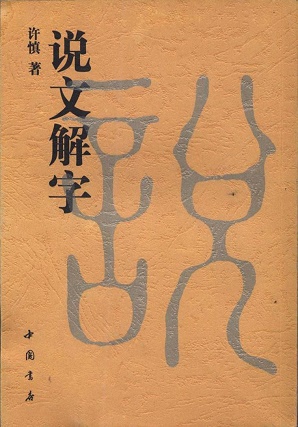 许慎 著
说文解字
説
中国书店